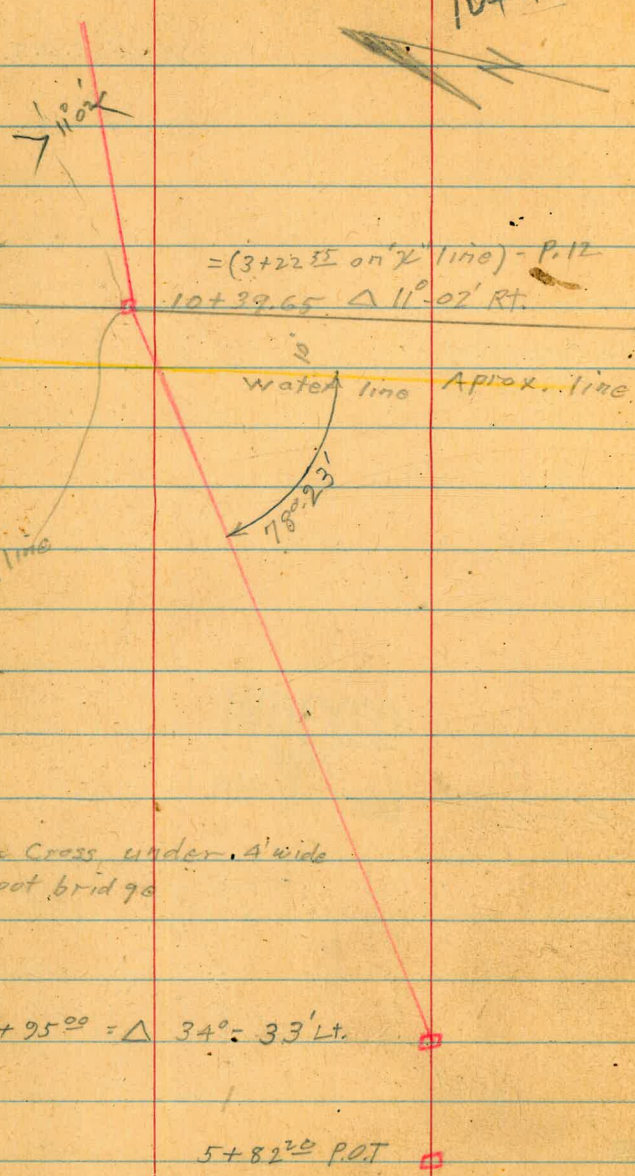 N
11° 02'
= (3+22 55 on "X" line) - P.12
10+39.65 Δ 11°-02' Rt.
10"
Water line Aprox. line
78°-23'
line
Cross under 4' wide
oot bridge
+ 95 00 = Δ 34°- 33' Lt.
5+82 20 P.O.T